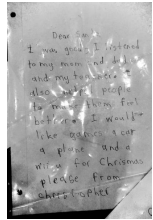 Dear Santa
I was good. I listened
to my mom and dad
and my teacher. I
also helped people
to make them feel
better. I would
like games a car
a plane and a
wii u for Chrismas
please from
christopher